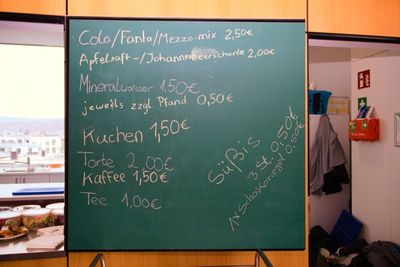 Cola/Fanta/Mezzo-mix 2,50€
Apfelsaft-/Johannesbeerschorle 2,00€
Mineralwasser 1,50€
jeweils zzgl Pfand 0,50€
Kuchen 1,50€
Torte 2,00€
Kaffee 1,50€
Tee 1,00€
Süßis
3 St. 0,50€
1x Schokoriegel 0,50€